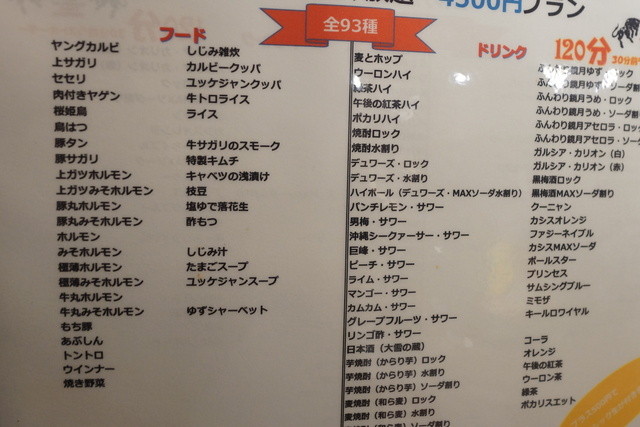 4500円プラン
全93種
フード
ヤングカルビ
上サガリ
セセリ
肉付きヤゲン
桜姫鳥
鳥はつ
豚タン
豚サガリ
上ガツホルモン
上ガツみそホルモン
豚丸ホルモン
豚丸みそホルモン
ホルモン
みそホルモン
極薄ホルモン
極薄みそホルモン
牛丸ホルモン
牛丸みそホルモン
もち豚
あぶしん
トントロ
ウインナー
焼き野菜
しじみ雑炊
カルビークッパ
ユッケジャンクッパ
牛トロライス
ライス
牛サガリのスモーク
特製キムチ
キャベツの浅漬け
枝豆
塩ゆで落花生
酢もつ
しじみ汁
たまごスープ
ユッケジャンスープ
ゆずシャーベット
ドリンク
120分
30分前
麦とホップ
ウーロンハイ
緑茶ハイ
午後の紅茶ハイ
ポカリハイ
焼酎ロック
焼酎水割り
デュワーズ・ロック
デュワーズ・水割り
ハイボール（デュワーズ・MAXソーダ水割り）
パンチレモン・サワー
男梅・サワー
沖縄シークァーサー・サワー
巨峰・サワー
ピーチ・サワー
ライム・サワー
マンゴー・サワー
カムカム・サワー
グレープフルーツ・サワー
リンゴ酢・サワー
日本酒（大雪の蔵）
芋焼酎（からり芋）ロック
芋焼酎（からり芋）水割り
芋焼酎（からり芋）ソーダ割り
麦焼酎（和ら麦）ロック
麦焼酎（和ら麦）水割り
麦焼酎（和ら麦）ソーダ割り
ふんわり鏡月ゆず・ロック
ふんわり鏡月ゆず・ソーダ割
ふんわり鏡月うめ・ロック
ふんわり鏡月うめ・ソーダ割
ふんわり鏡月アセロラ・ロック
ふんわり鏡月アセロラ・ソーダ
ガルシア・カリオン（白）
ガルシア・カリオン（赤）
黒梅酒ロック
黒梅酒MAXソーダ割り
クーニャン
カシスオレンジ
ファジーネイブル
カシスMAXソーダ
ポールスター
プリンセス
サムシングブルー
ミモザ
キールロワイヤル
コーラ
オレンジ
午後の紅茶
ウーロン茶
緑茶
ポカリスエット